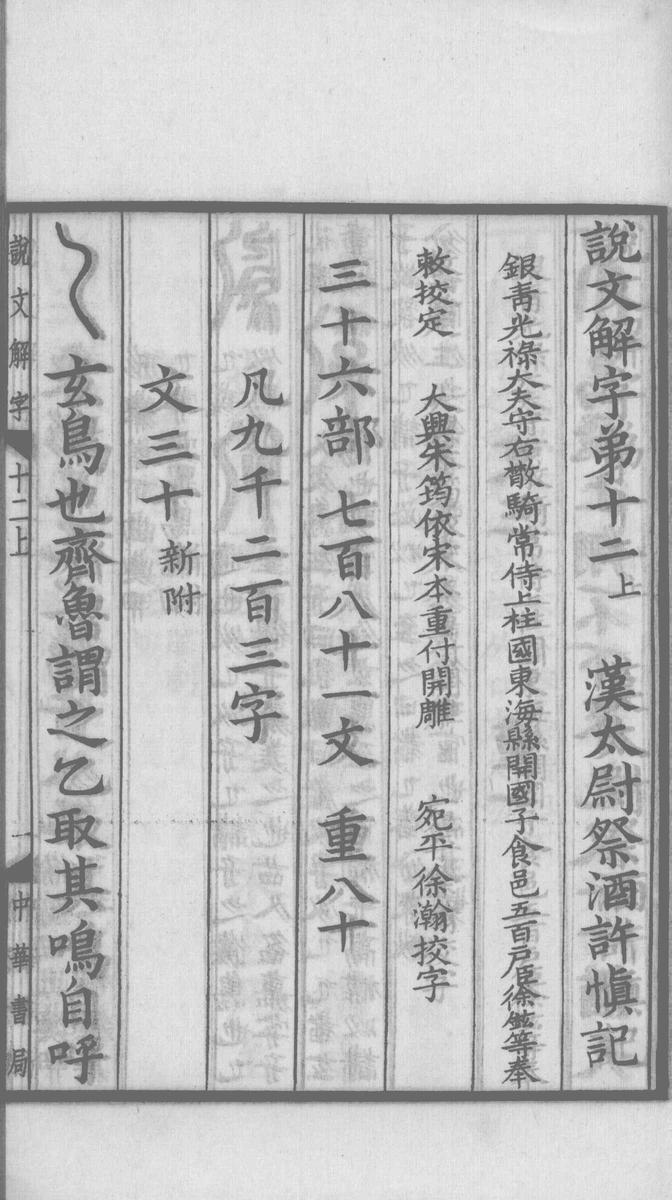 說文解字弟十二上 漢太尉祭酒許慎記
銀青光祿大夫守右散騎常侍上柱國東海縣開國子食邑五百戶臣徐鉉等奉
敕挍定 大興朱筠依宋本重付開雕 宛平徐瀚挍字
三十六部 七百八十一文 重八十
凡九千二百三字
文三十新附
玄鳥也齊魯謂之乞取其鳴自呼
說文解字 十二上 一 中華書局